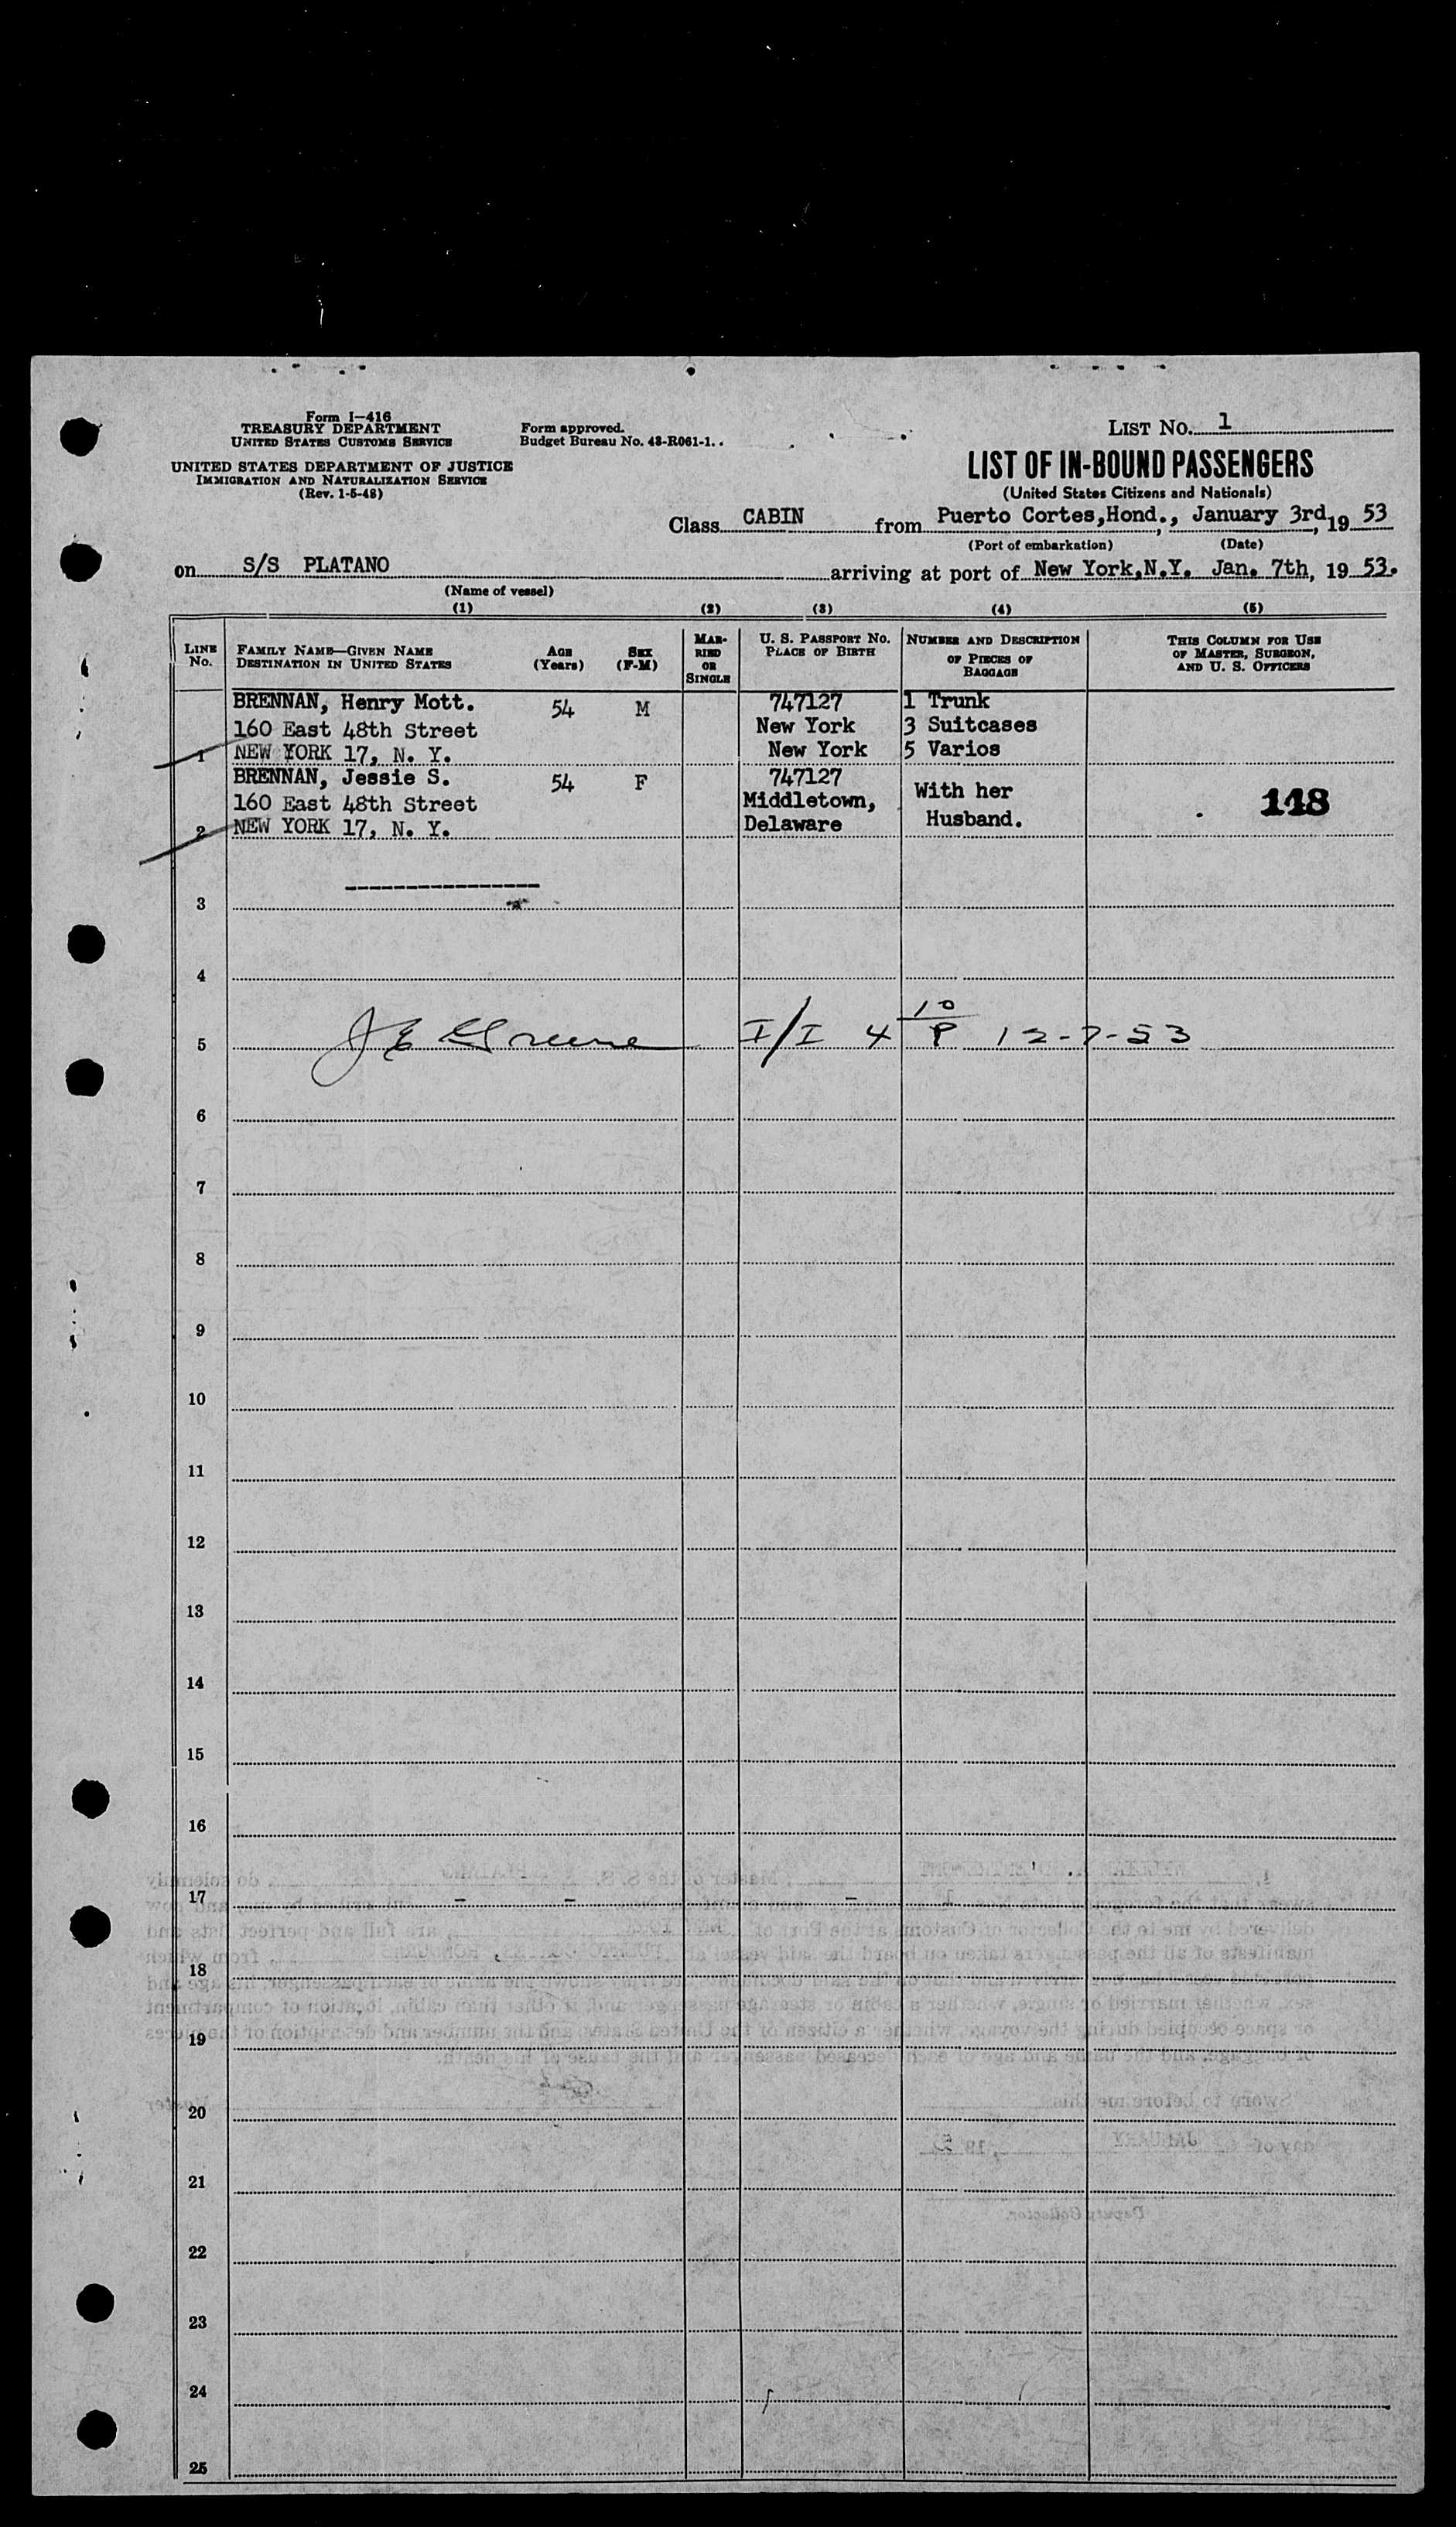 Form I-416
TREASURY DEPARTMENT
UNITED STATES CUSTOMS SERVICE
UNITED STATES DEPARTMENT OF JUSTICE
IMMIGRATION AND NATURALIZATION SERVICE
(Rev. 1-5-48)
Form approved.
Budget Bureau No. 43-R061-1.
LIST NO. 1
LIST OF IN-BOUND PASSENGERS
(United States Citizens and Nationals)
Class CABIN from Puerto Cortes,Hond., January 3rd, 19 53
(Port of embarkation) (Date)
on S/S PLATANO arriving at port of New York,N.Y. Jan. 7th, 19 53.
(Name of vessel)
(1) (2) (3) (4) (5)
LINE No.
FAMILY NAME—GIVEN NAME
DESTINATION IN UNITED STATES
AGE (Years)
SEX (F-M)
MARRIED OR SINGLE
U. S. PASSPORT NO.
PLACE OF BIRTH
NUMBER AND DESCRIPTION
OF PIECES OF
BAGGAGE
THIS COLUMN FOR USE
OF MASTER, SURGEON,
AND U. S. OFFICERS
BRENNAN, Henry Mott. 54 M 747127 1 Trunk
160 East 48th Street New York 3 Suitcases
1 NEW YORK 17, N. Y. New York 5 Varios
BRENNAN, Jessie S. 54 F 747127 With her
160 East 48th Street Middletown, Husband. 118
2 NEW YORK 17, N. Y. Delaware
3
4
5 J E Greene I/I 4 10/P 12-7-53
6
7
8
9
10
11
12
13
14
15
16
17
18
19
20
21
22
23
24
25